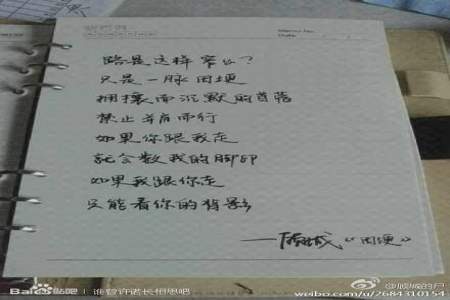 Memo No.
Date
路是这样窄么?
只是一脉田埂
拥攘而沉默的苜蓿
禁止并肩而行
如果你跟我走
就会数我的脚印
如果我跟你走
只能看你的背影
——顾城《田埂》
Bai贴吧 | 谁曾许诺长相思吧
@顾城的户
weibo.com/u/2684310154